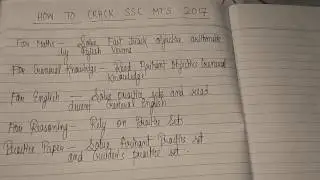 HOW TO CRACK SSC MTS 2017
For Maths - Solve Fast track objective arithmetic
by Rajesh Verma
For General Knowledge - Read Arihant Objective General
Knowledge
For English - Solve practice sets and read
General English
For Reasoning - Rely on Practice Sets
Practice Paper - Solve Arihant Practice set
and practice set.